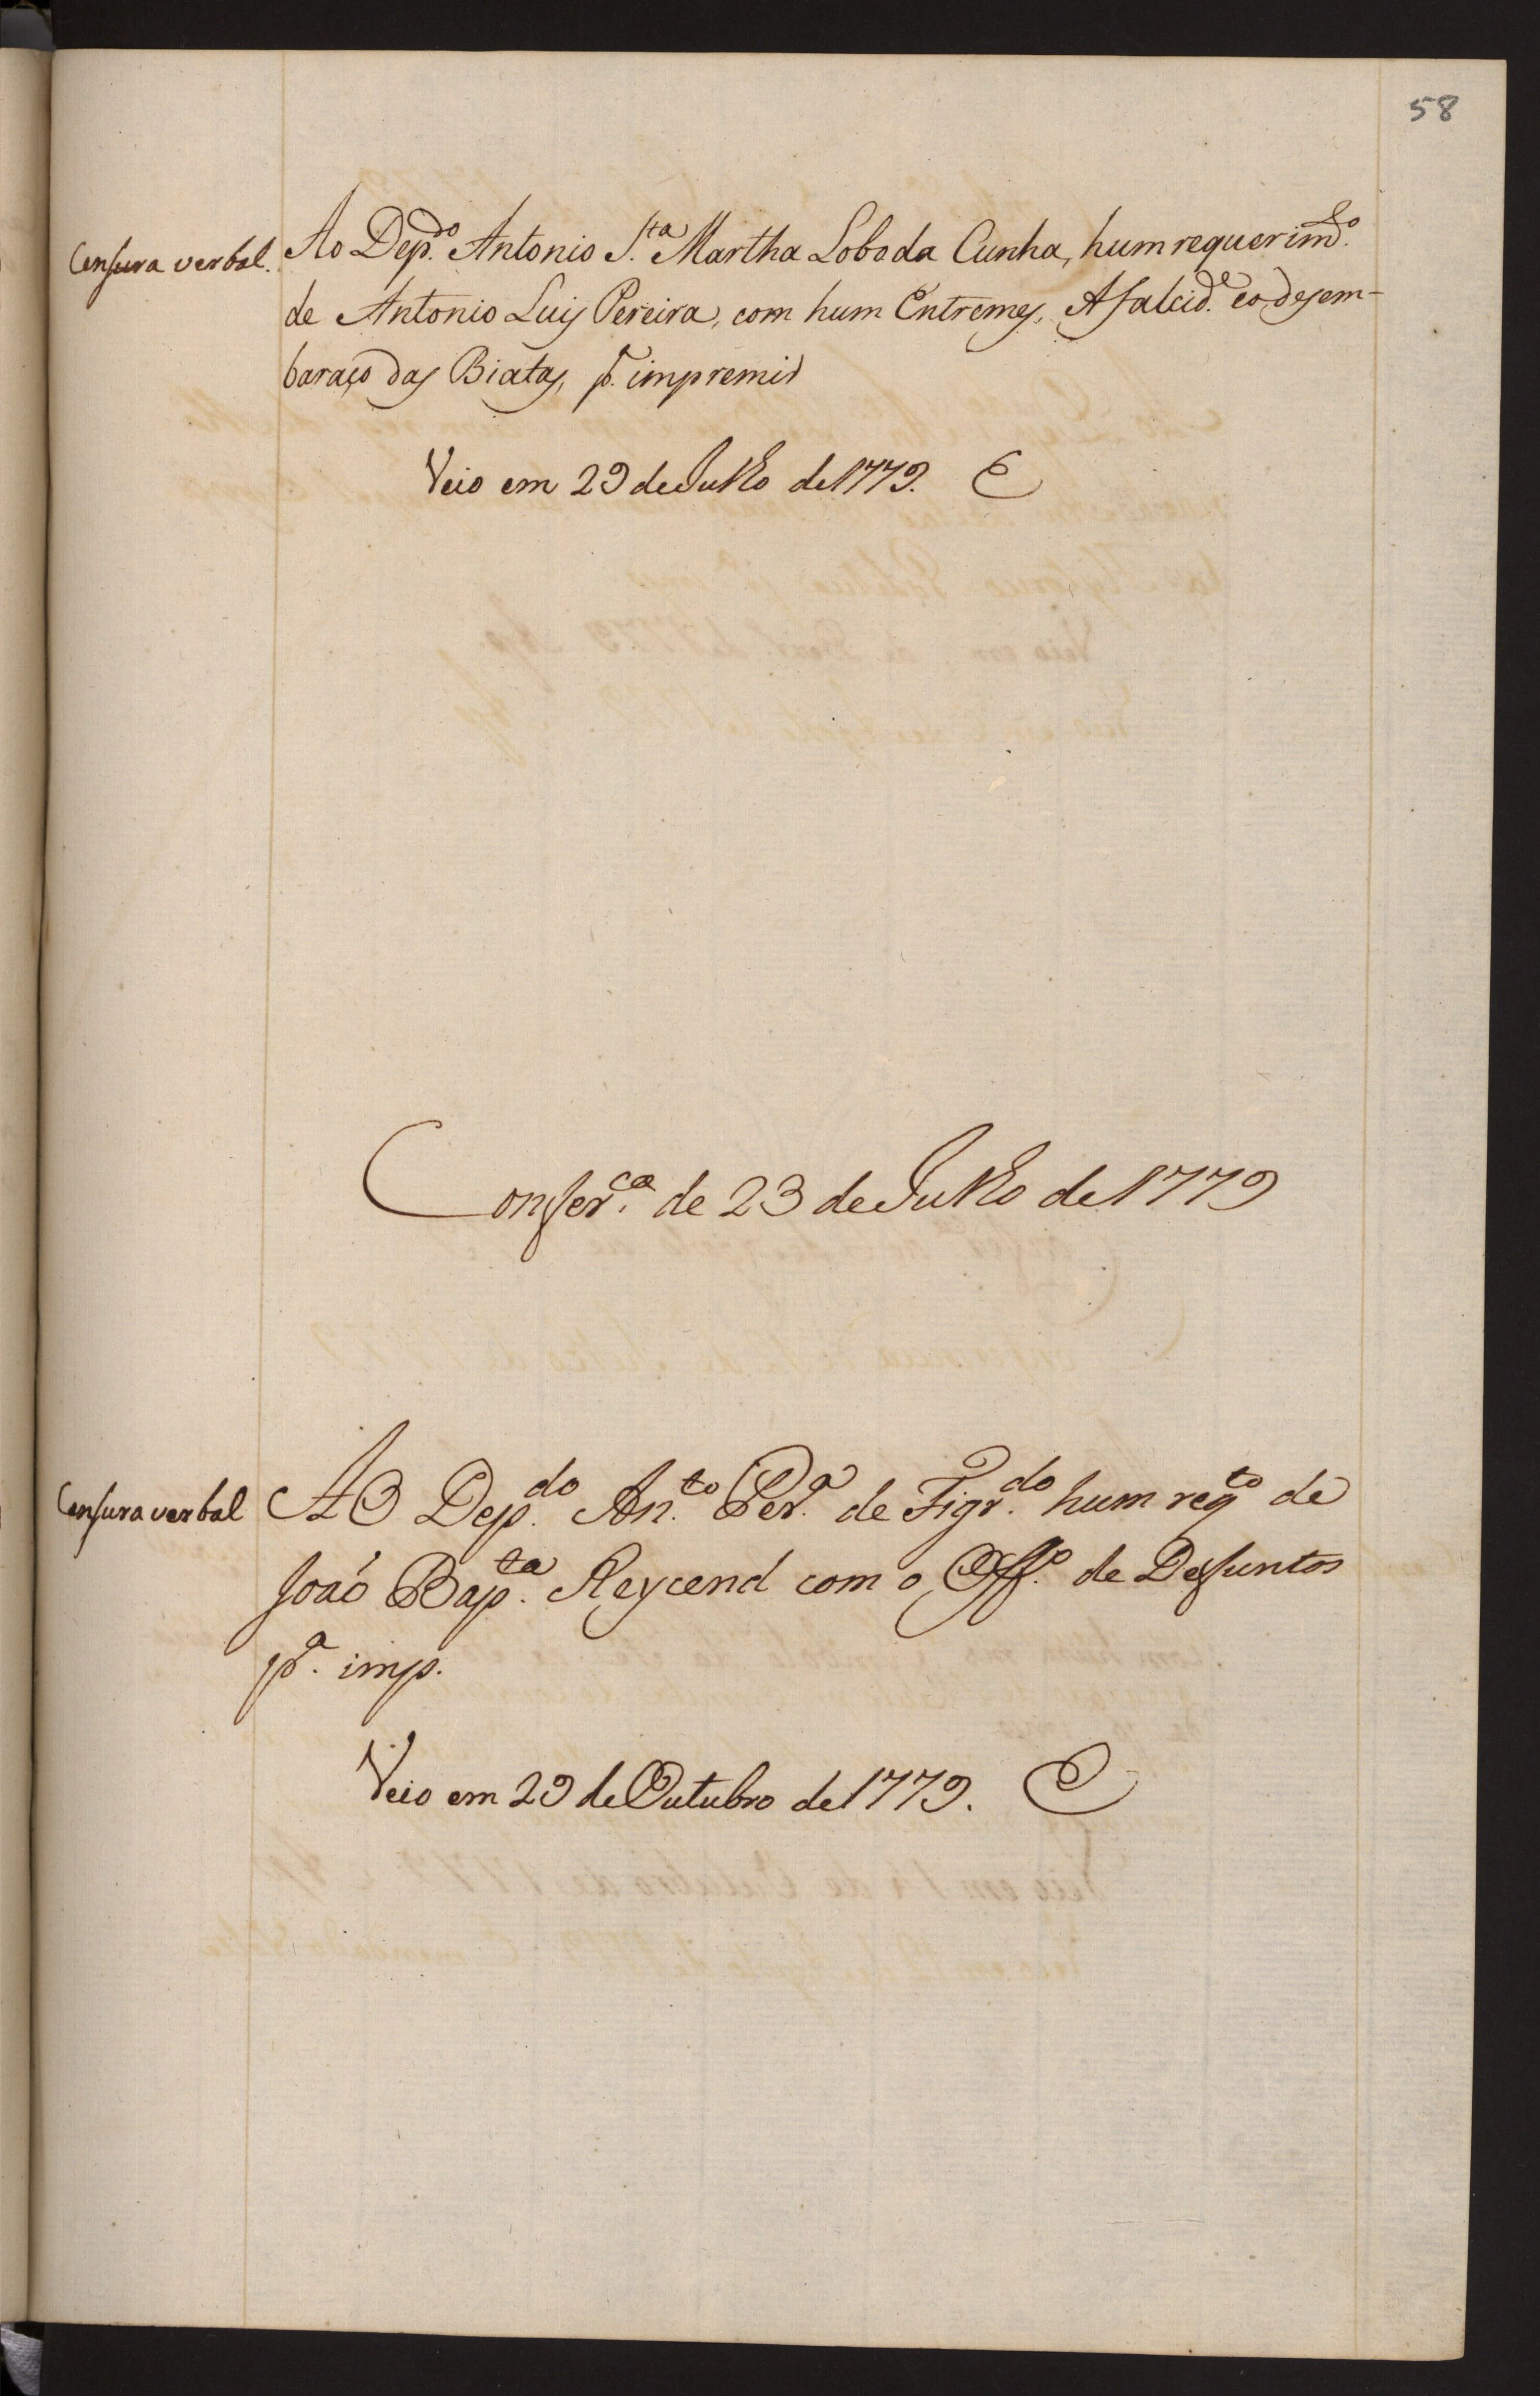 58
Censura verbal.
Ao Dep.do Antonio S.ta Martha Lobo da Cunha, hum requerim.to
de Antonio Luis Pereira, com hum Entremes, A falcid.e e o desem-
baraço das Biatas, p.a impremir
Veio em 29 de Julho de 1779. E
Confer.ca de 23 de Julho de 1779
Censura verbal
AO Dep.do An.to Per.a de Figr.do hum req.to de
João Bap.ta Reycend com o Off.o de Defuntos
p.a imp.
Veio em 29 de Outubro de 1779. E